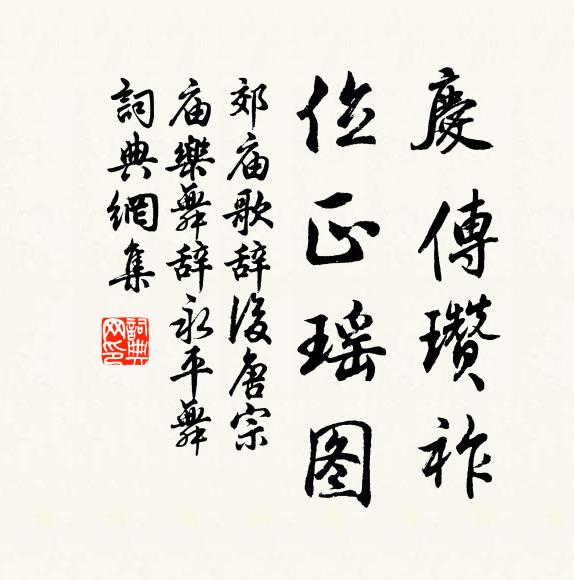 慶傳瓚祚
位正瑶图
郊庙歌辞後唐宗
庙樂舞辞永平舞
詞典網集
詞典
网印